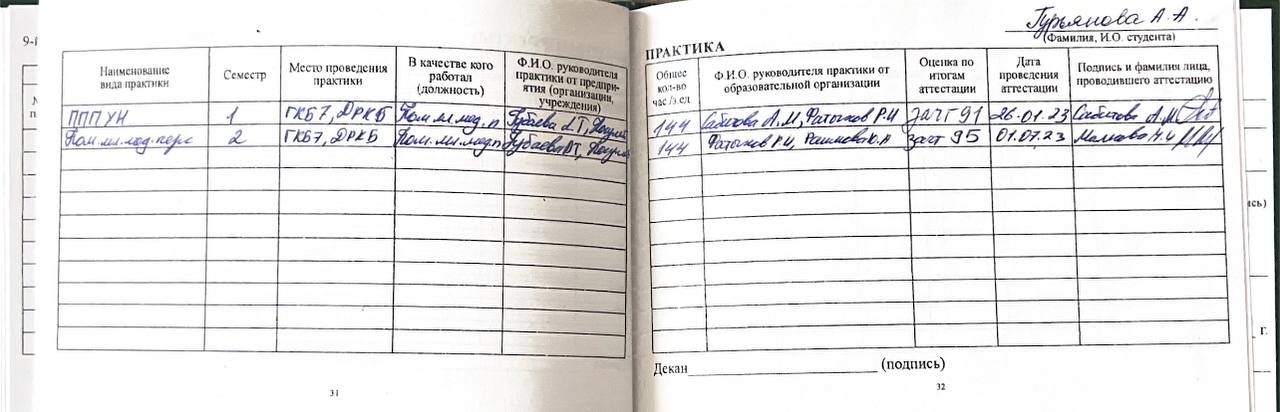 9-
Наименование вида практики
Семестр
Место проведения практики
В качестве кого работал (должность)
Ф.И.О. руководителя практики от предприятия (организации, учреждения)
ПППУН 1 ГКБ7, ДРКБ Пом.мл.мед.п Губаева
Пом.мл.мед.перс 2 ГКБ7, ДРКБ Пом.мл.мед.п Губаева
31
Гурьянова А.А.
(Фамилия, И.О. студента)
ПРАКТИКА
Общее кол-во час /з.ед.
Ф.И.О. руководителя практики от образовательной организации
Оценка по итогам аттестации
Дата проведения аттестации
Подпись и фамилия лица, проводившего аттестацию
144 Сабитова А.М, Фатыхов Р.И зачт 91 26.01.23 Сабитова А.М
144 Фатыхов Р.И, зачт 95 01.07.23
Декан (подпись)
32
ись)
г.